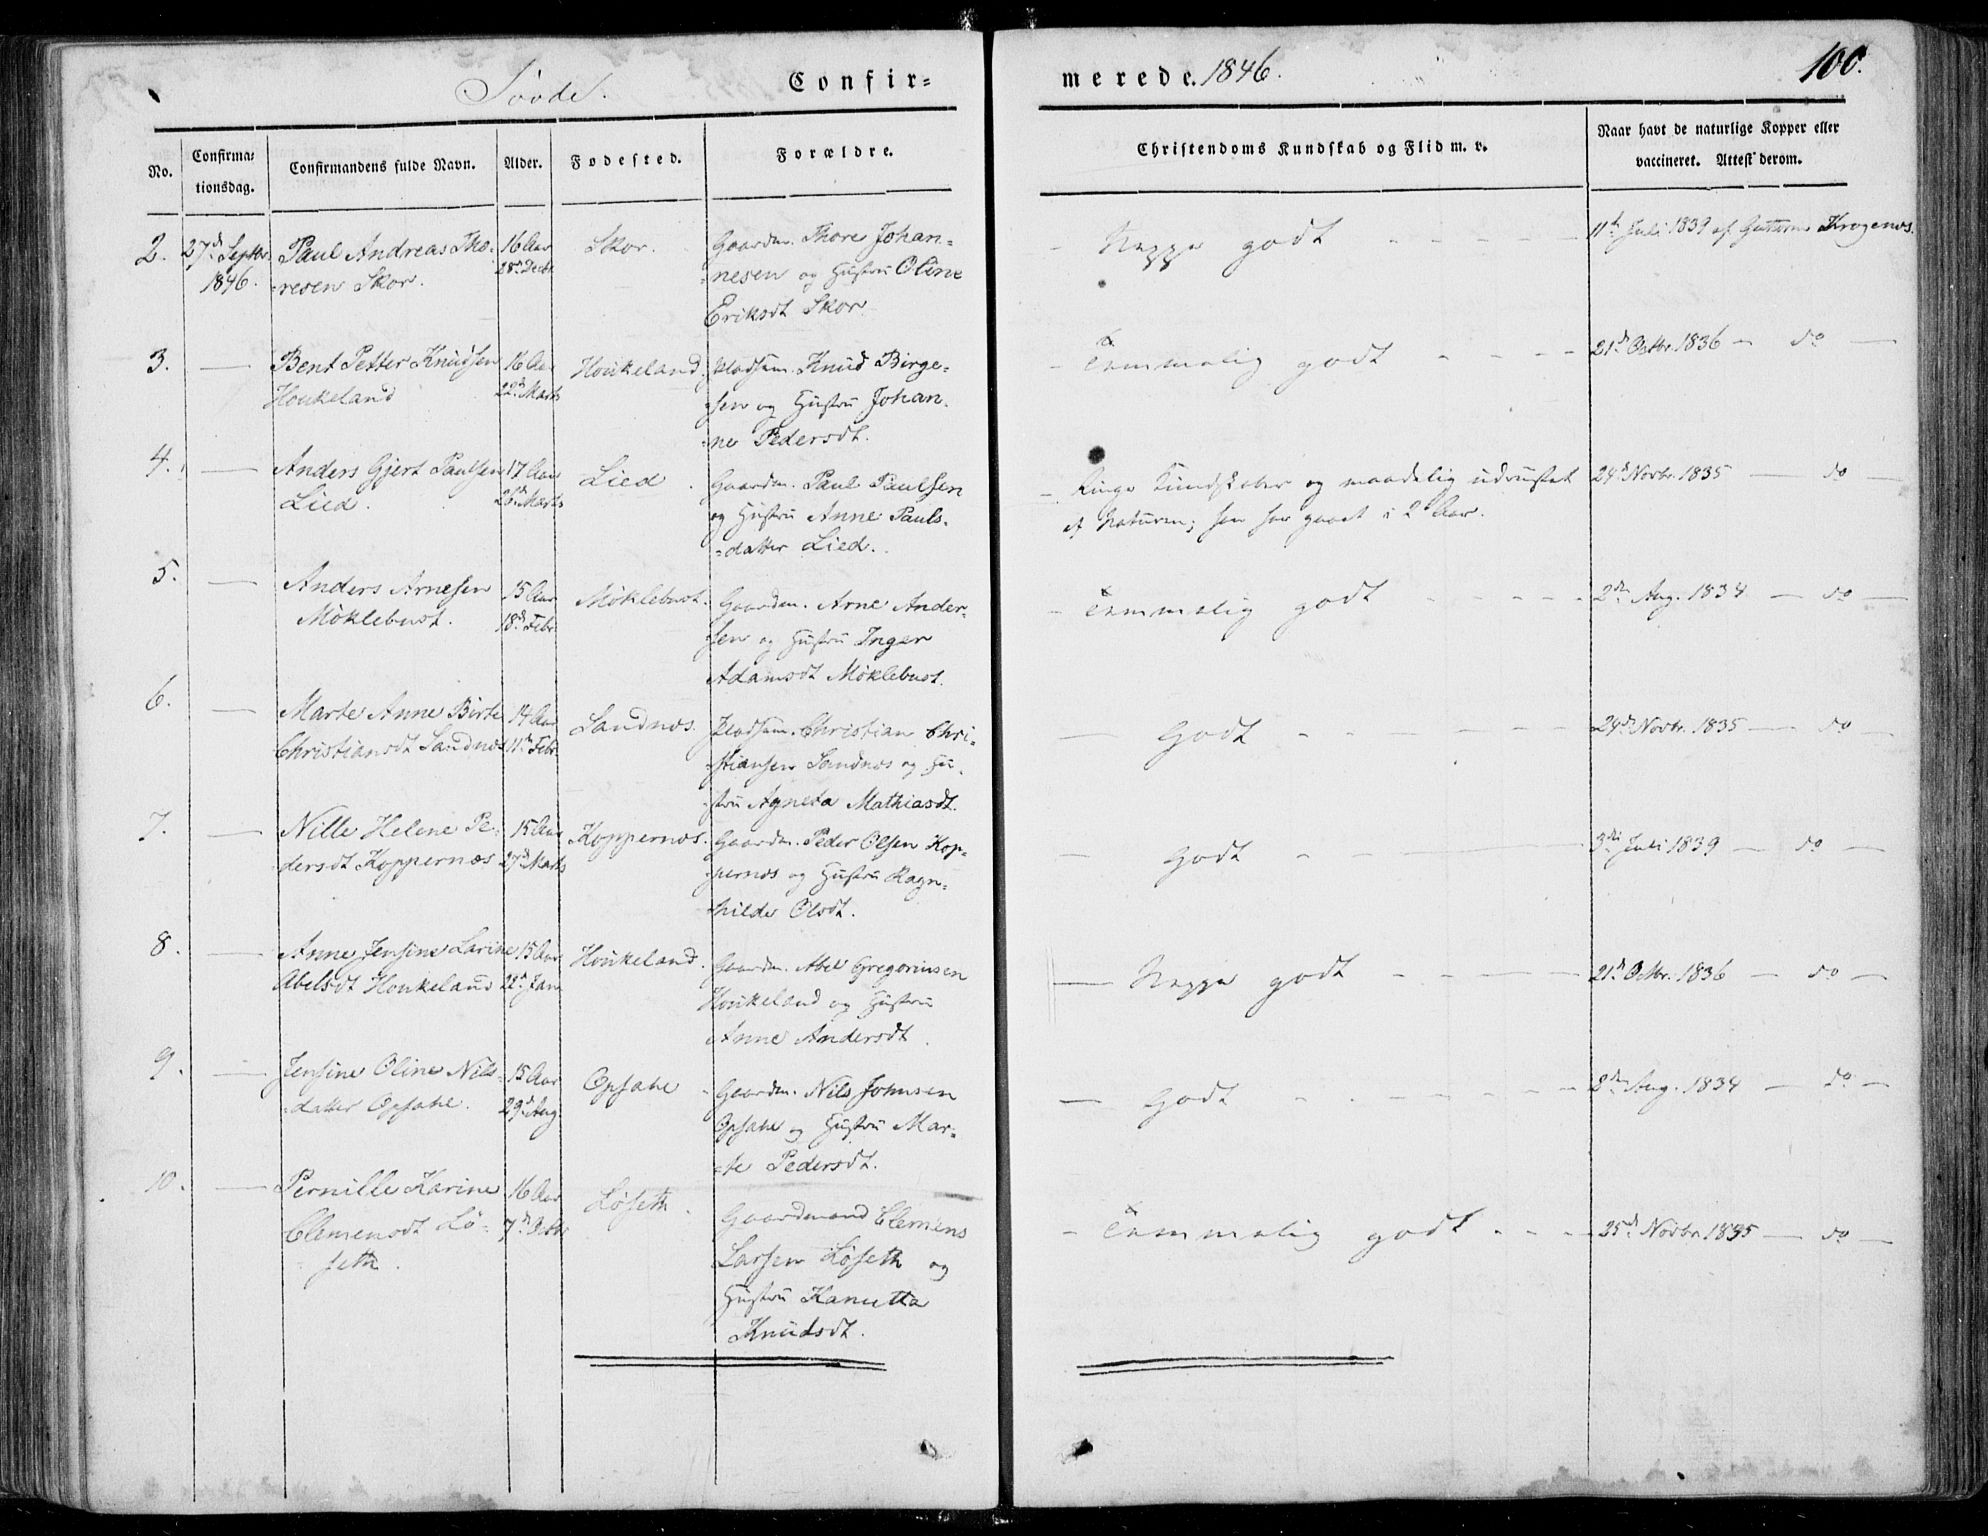 Søvde.
Confir=
merede. 1846.
100.
No.
Confirma=
tionsdag.
Confirmandens fulde Navn.
Alder.
Fødested.
Forældre.
Christendoms Kundskab og Flid m. v.
Naar havt de naturlige Kopper eller
vaccineret. Attest derom.
2. 27d Septbr 1846.
Paul Andreas Tho=
=resen Skor.
16 Aar
28d Decbr
Skor.
Gaardm. Thore Johan=
=nesen og Hustru Oline
Eriksdt Skor
Neppe godt
11te Juli 1839 af Guttorm Kragenæs.
3. —
Bent Petter Knudsen
Houkeland
16 Aar
22d Marts
Houkeland.
Pladsem. Knud Birge=
=sen og Hustru Johan=
=ne Pedersdt.
Temmelig godt
21d Octbr. 1836 — do —
4. —
Anders Gjert Paulsen
Lied.
17 Aar
26d Marts
Lied.
Gaardm. Paul Paulsen
og Hustru Anne Pauls=
=datter Lied.
Ringe Kundskaber og maadelig udrustet
af Naturen; han har gaaet i 2 Aar.
24d Novbr. 1835 — do —
5. —
Anders Arnesen
Möklebust.
15 Aar
18d Febr.
Möklebust.
Gaardm. Arne Ander=
sen og Hustru Inger
Adamsdt Möklebust.
Temmelig godt
2den Aug. 1834 — do —
6. —
Marte Anne Birte
Christiansdt Sandnæs
14 Aar
11te Febr.
Sandnæs.
Pladsem. Christian Chri=
=stiansen Sandnæs og Hu=
=stru Agneta Mathiasdt.
Godt
24d Novbr. 1835 — do —
7. —
Nille Helene Pe=
dersdt Koppernæs
15 Aar
27d Marts
Koppernæs.
Gaardm. Peder Olsen Kop=
pernæs og Hustru Ragn=
=hilde Olsdt.
Godt
3die Juli 1839 — do —
8. —
Anne Jensine Larine
Abelsdt Houkeland
15 Aar
22d Jan
Houkeland.
Gaardm. Abel Gregoriusen
Houkeland og Hustru
Anne Andersdt.
Neppe godt
21d Octbr. 1836 — do —
9. —
Jensine Oline Nils=
=datter Opsahl.
15 Aar
29d Aug
Opsahl
Gaardm. Nils Johnsen
Opsahl og Hustru Mar=
=te Pedersdt.
Godt
2den Aug. 1834 — do —
10. —
Pernille Karine
Clemensdt Lö=
=seth.
16 Aar
7d Octbr
Löseth.
Gaardmand Clemens
Larsen Löseth og
Hustru Kanutta
Knudsdt.
Temmelig godt
25d Novbr 1835 — do —